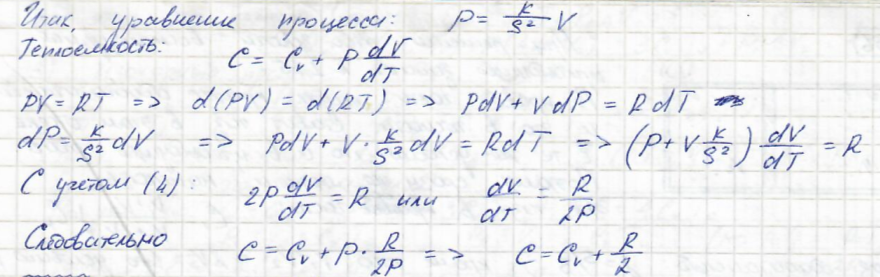 Итак, уравнение процесса: P = k/S² V
Теплоемкость: C = Cᵥ + P dV/dT
PV = RT => d(PV) = d(RT) => PdV + VdP = RdT
dP = k/S² dV => PdV + V · k/S² dV = RdT => (P + V k/S²) dV/dT = R
С учетом (4): 2P dV/dT = R или dV/dT = R/2P
Следовательно C = Cᵥ + P · R/2P => C = Cᵥ + R/2